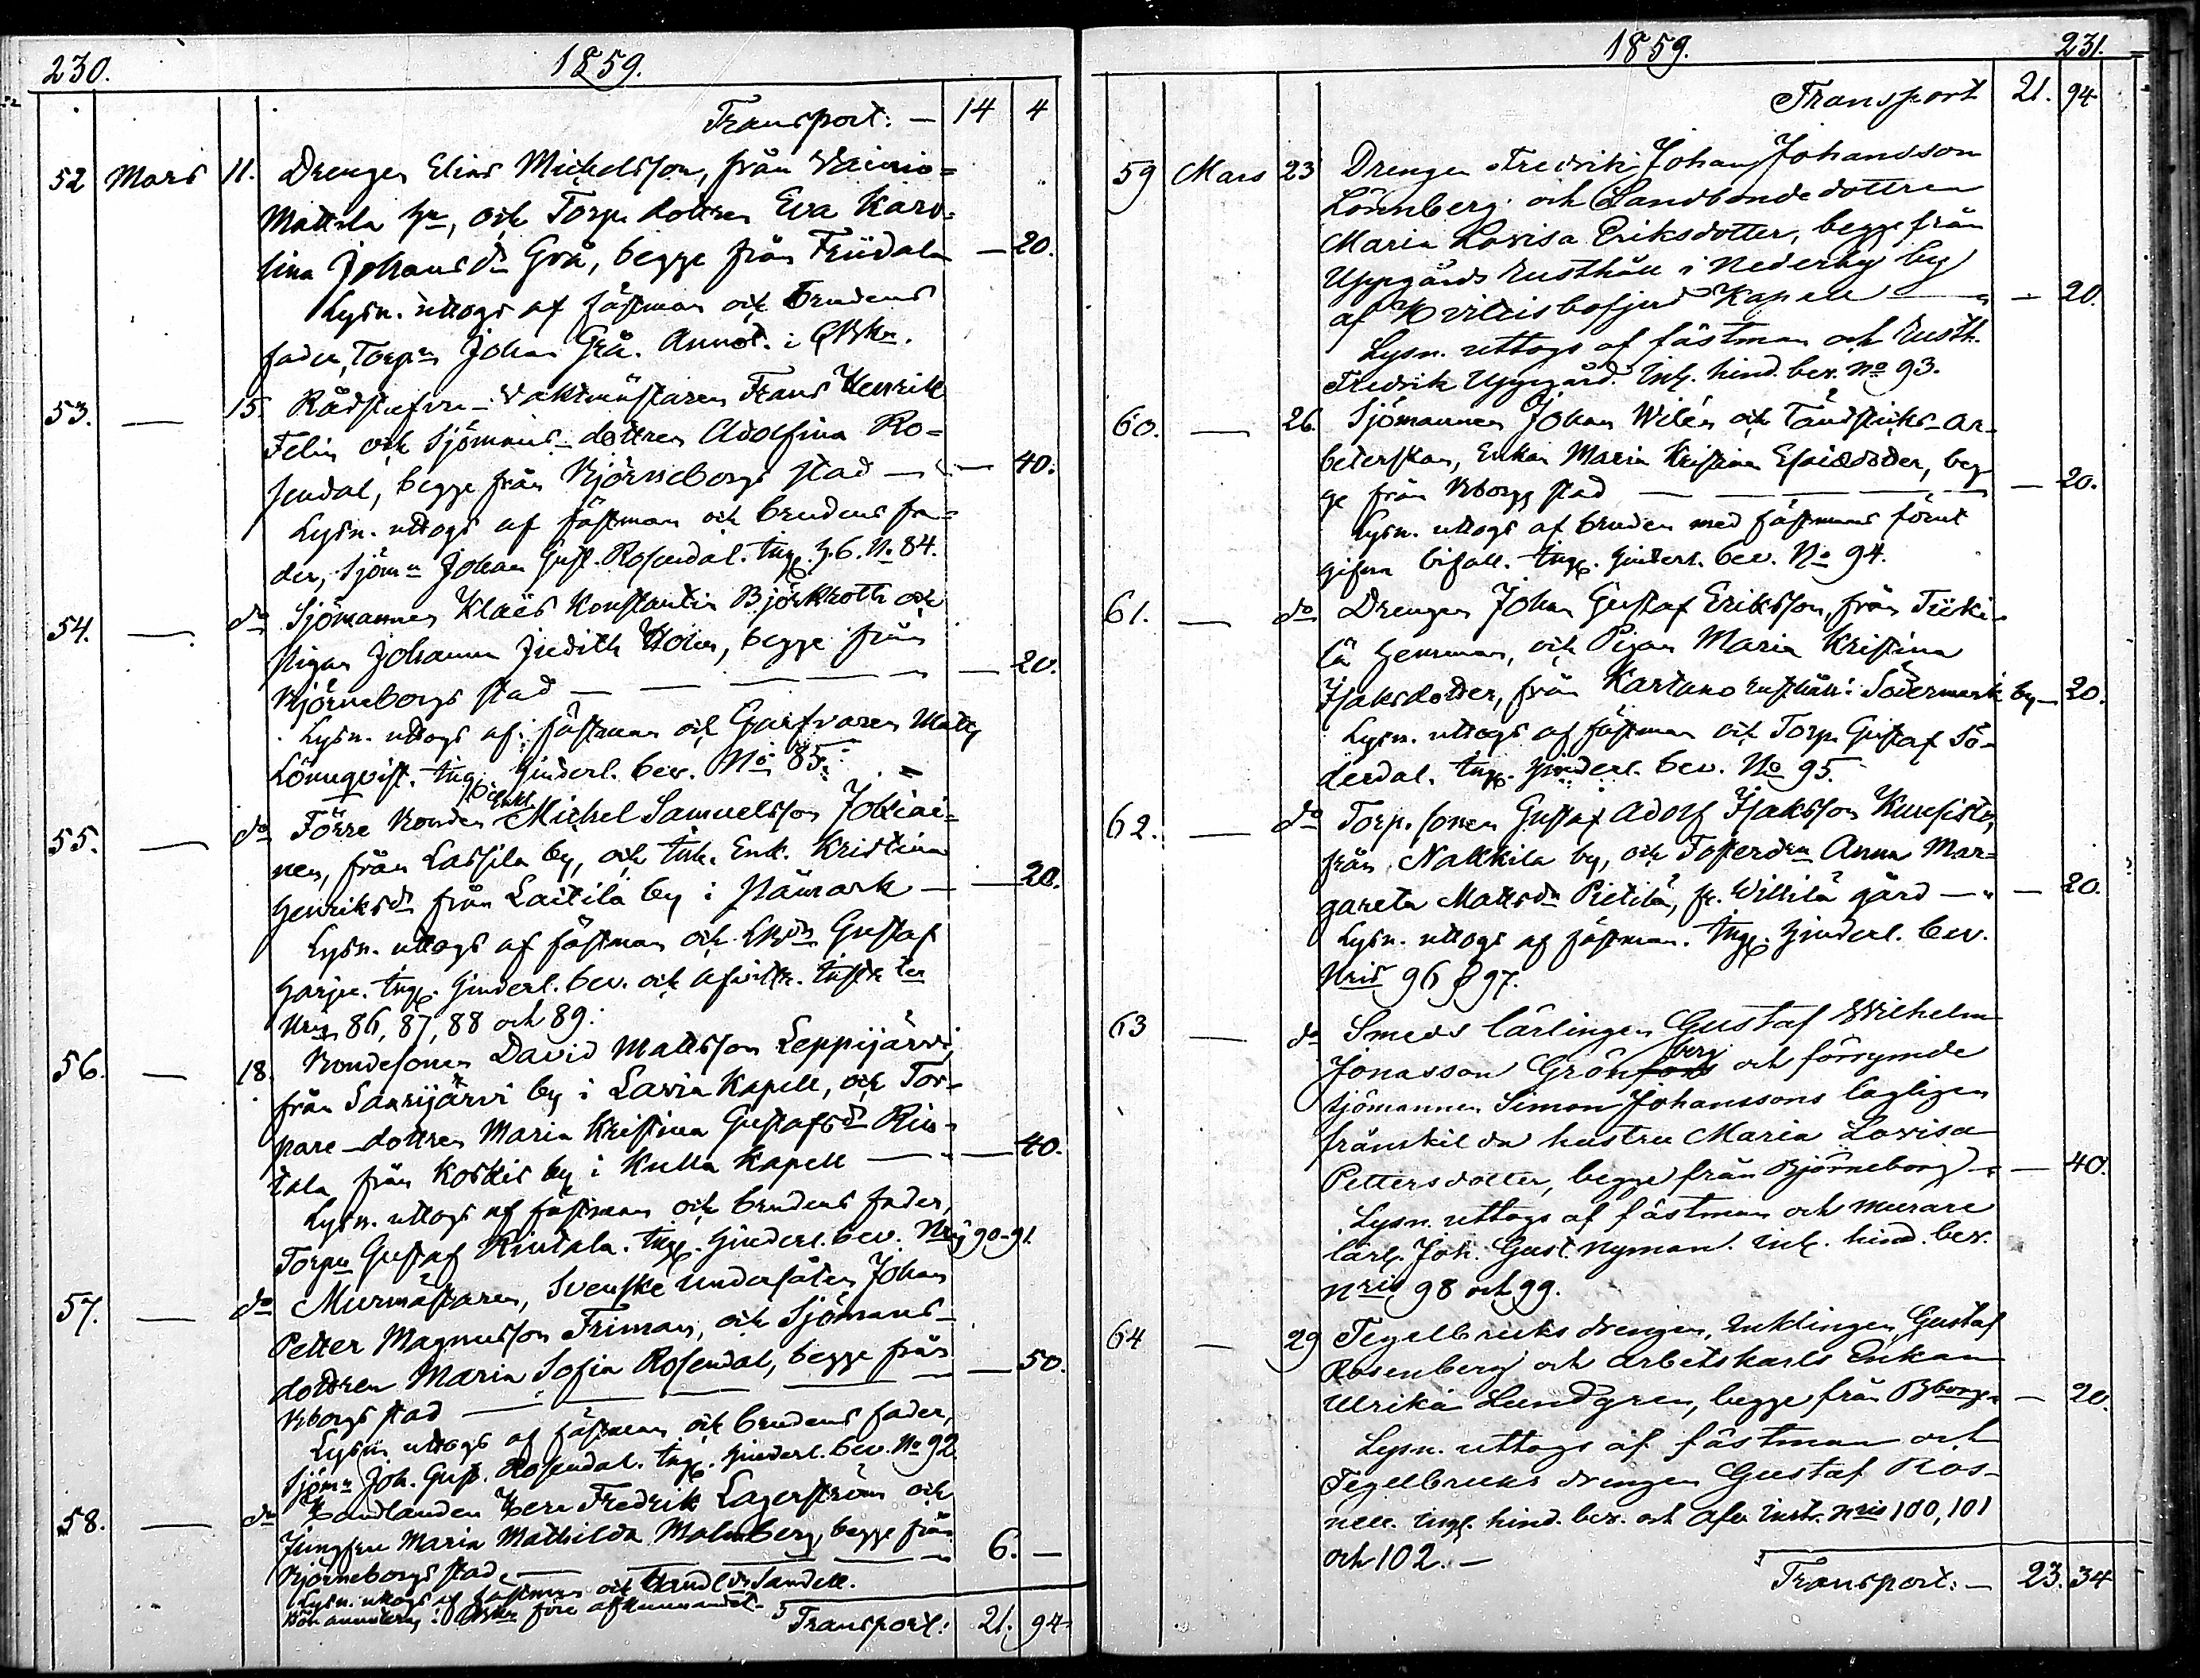 230. 1859.
Transport: — 14 4
52 Mars 11. Drengen Elias Michelsson, från Wainio-
Mattila hn, och Torp. dottren Eva Karo-
lina Johansdr Grå, begge från Friidala — 20.
Lysn. uttogs af fästman och brudens
fader, Torpn Johan Grå. Annot. i
53. — 15. Rådstufvu-Vaktmästaren Frans Henrik
Felin och Sjömans-dottren Adolfina Ro-
sendal, begge från Björneborgs stad — 40.
Lysn. uttogs af fästman och brudens fa-
der, Sjömn Johan Gust. Rosendal. Ing. h.b. No 84.
54. — do Sjömannen Klaës Konstantin Björkroth och
Pigan Johanna Judith Holm, begge från
Björneborgs stad — — — — 20.
Lysn. uttogs af fästman och Garfvaren Matts
Lönnqvist. Ing. hinderl. bev. No 85.
55. — do Förre Bonden Enkl. Michel Samuelsson
nen, från Lassila by, och Enk. Kristina
Henriksdr från Laitila by i Påmark — 20.
Lysn. uttogs af fästman och Gustaf
Harju. Ing. hinderl. bev. och
Nris 86, 87, 88 och 89.
56. — 18. Bondesonen David Mattsson Leppijärvi,
från Saarijärvi by i Lavia Kapell, och Tor-
pare-dottren Maria Kristina Gustafsdr Rin-
tala från Koskis by i Kulla Kapell — 40.
Lysn. uttogs af fästman och brudens fader,
Torpn Gustaf Rintala. Ing. hinderl. bev. Nris 90-91.
57. — do Murmästaren, Svenske undersåten Johan
Petter Magnusson Friman, och Sjömans-
dottren Maria Sofia Rosendal, begge från
Bborgs stad — — — — 50.
Lysn. uttogs af fästman och brudens fader,
Sjömn Joh. Gust. Rosendal. Ing. hinderl. bev. No 92.
58. — do Handlanden Herr Fredrik Lagerström och
Jungfru Maria Mathilda Malmberg, begge från
Björneborgs stad — — — 6. —
Lysn. uttogs af fästman och Handl. Sandell.
före afkunnandet.
Transport: 21. 94.
1859. 231.
Transport 21. 94
59 Mars 23 Drengen Fredrik Johan Johansson
Lönnberg och Landbonde dottren
Maria Lovisa Eriksdotter, begge från
Uppgårds Rusthåll i Nederby by
af Hvittisbofjerd Kapell — 20.
Lysn. uttogs af fästman och Rusth.
Fredrik Uppgård. Ing. hind. bev. No 93.
60. — 26. Sjömannen Johan Wilén och Tändsticks-ar-
beterskan, Enkan Maria Kristina Esaiædotter, beg-
ge från Bborgs stad — — — — 20.
Lysn. uttogs af bruden med fästmans förut
gifna bifall. Ing. hinderl. bev. No 94.
61. — do Drengen Johan Gustaf Eriksson, från Tiiki-
lä hemman, och Pigan Maria Kristina
Isaksdotter, från Kartano rusthåll i Södermark by — 20.
Lysn. uttogs af fästman och Torp. Gustaf Sö-
derdal. Ing. hinderl. bev. No 95.
62. — do Torp. sonen Gustaf Adolf Isaksson Kuusisto,
från Nakkila by, och Fosterdrn Anna Mar-
gareta Mattsdr Pietilä, fr. Willilä gård — 20.
Lysn. uttogs af fästman. Ing. hinderl. bev.
Nris 96 & 97.
63 — do Smeds lärlingen Gustaf Wilhelm
Jonasson Grönberg och förrymde
sjömannen Simon Johanssons lagligen
frånskilda hustru Maria Lovisa
Pettersdotter, begge från Björneborg — 40.
Lysn. uttogs af fästman och murare
lärl. Joh. Gust. Nyman. Ing. hind. bev.
nris 98 och 99.
64 — 29 Tegelbruks drengen, Enklingen Gustaf
Rosenberg och Arbetskarls Enkan
Ulrika Lundgren, begge från Bborg — 20.
Lysn. uttogs af fästman och
Tegelbruks drengen Gustaf Ros-
nell. Ing. hind. bev. och Afv. inst. nris 100, 101
och 102. —
Transport: — 23. 34